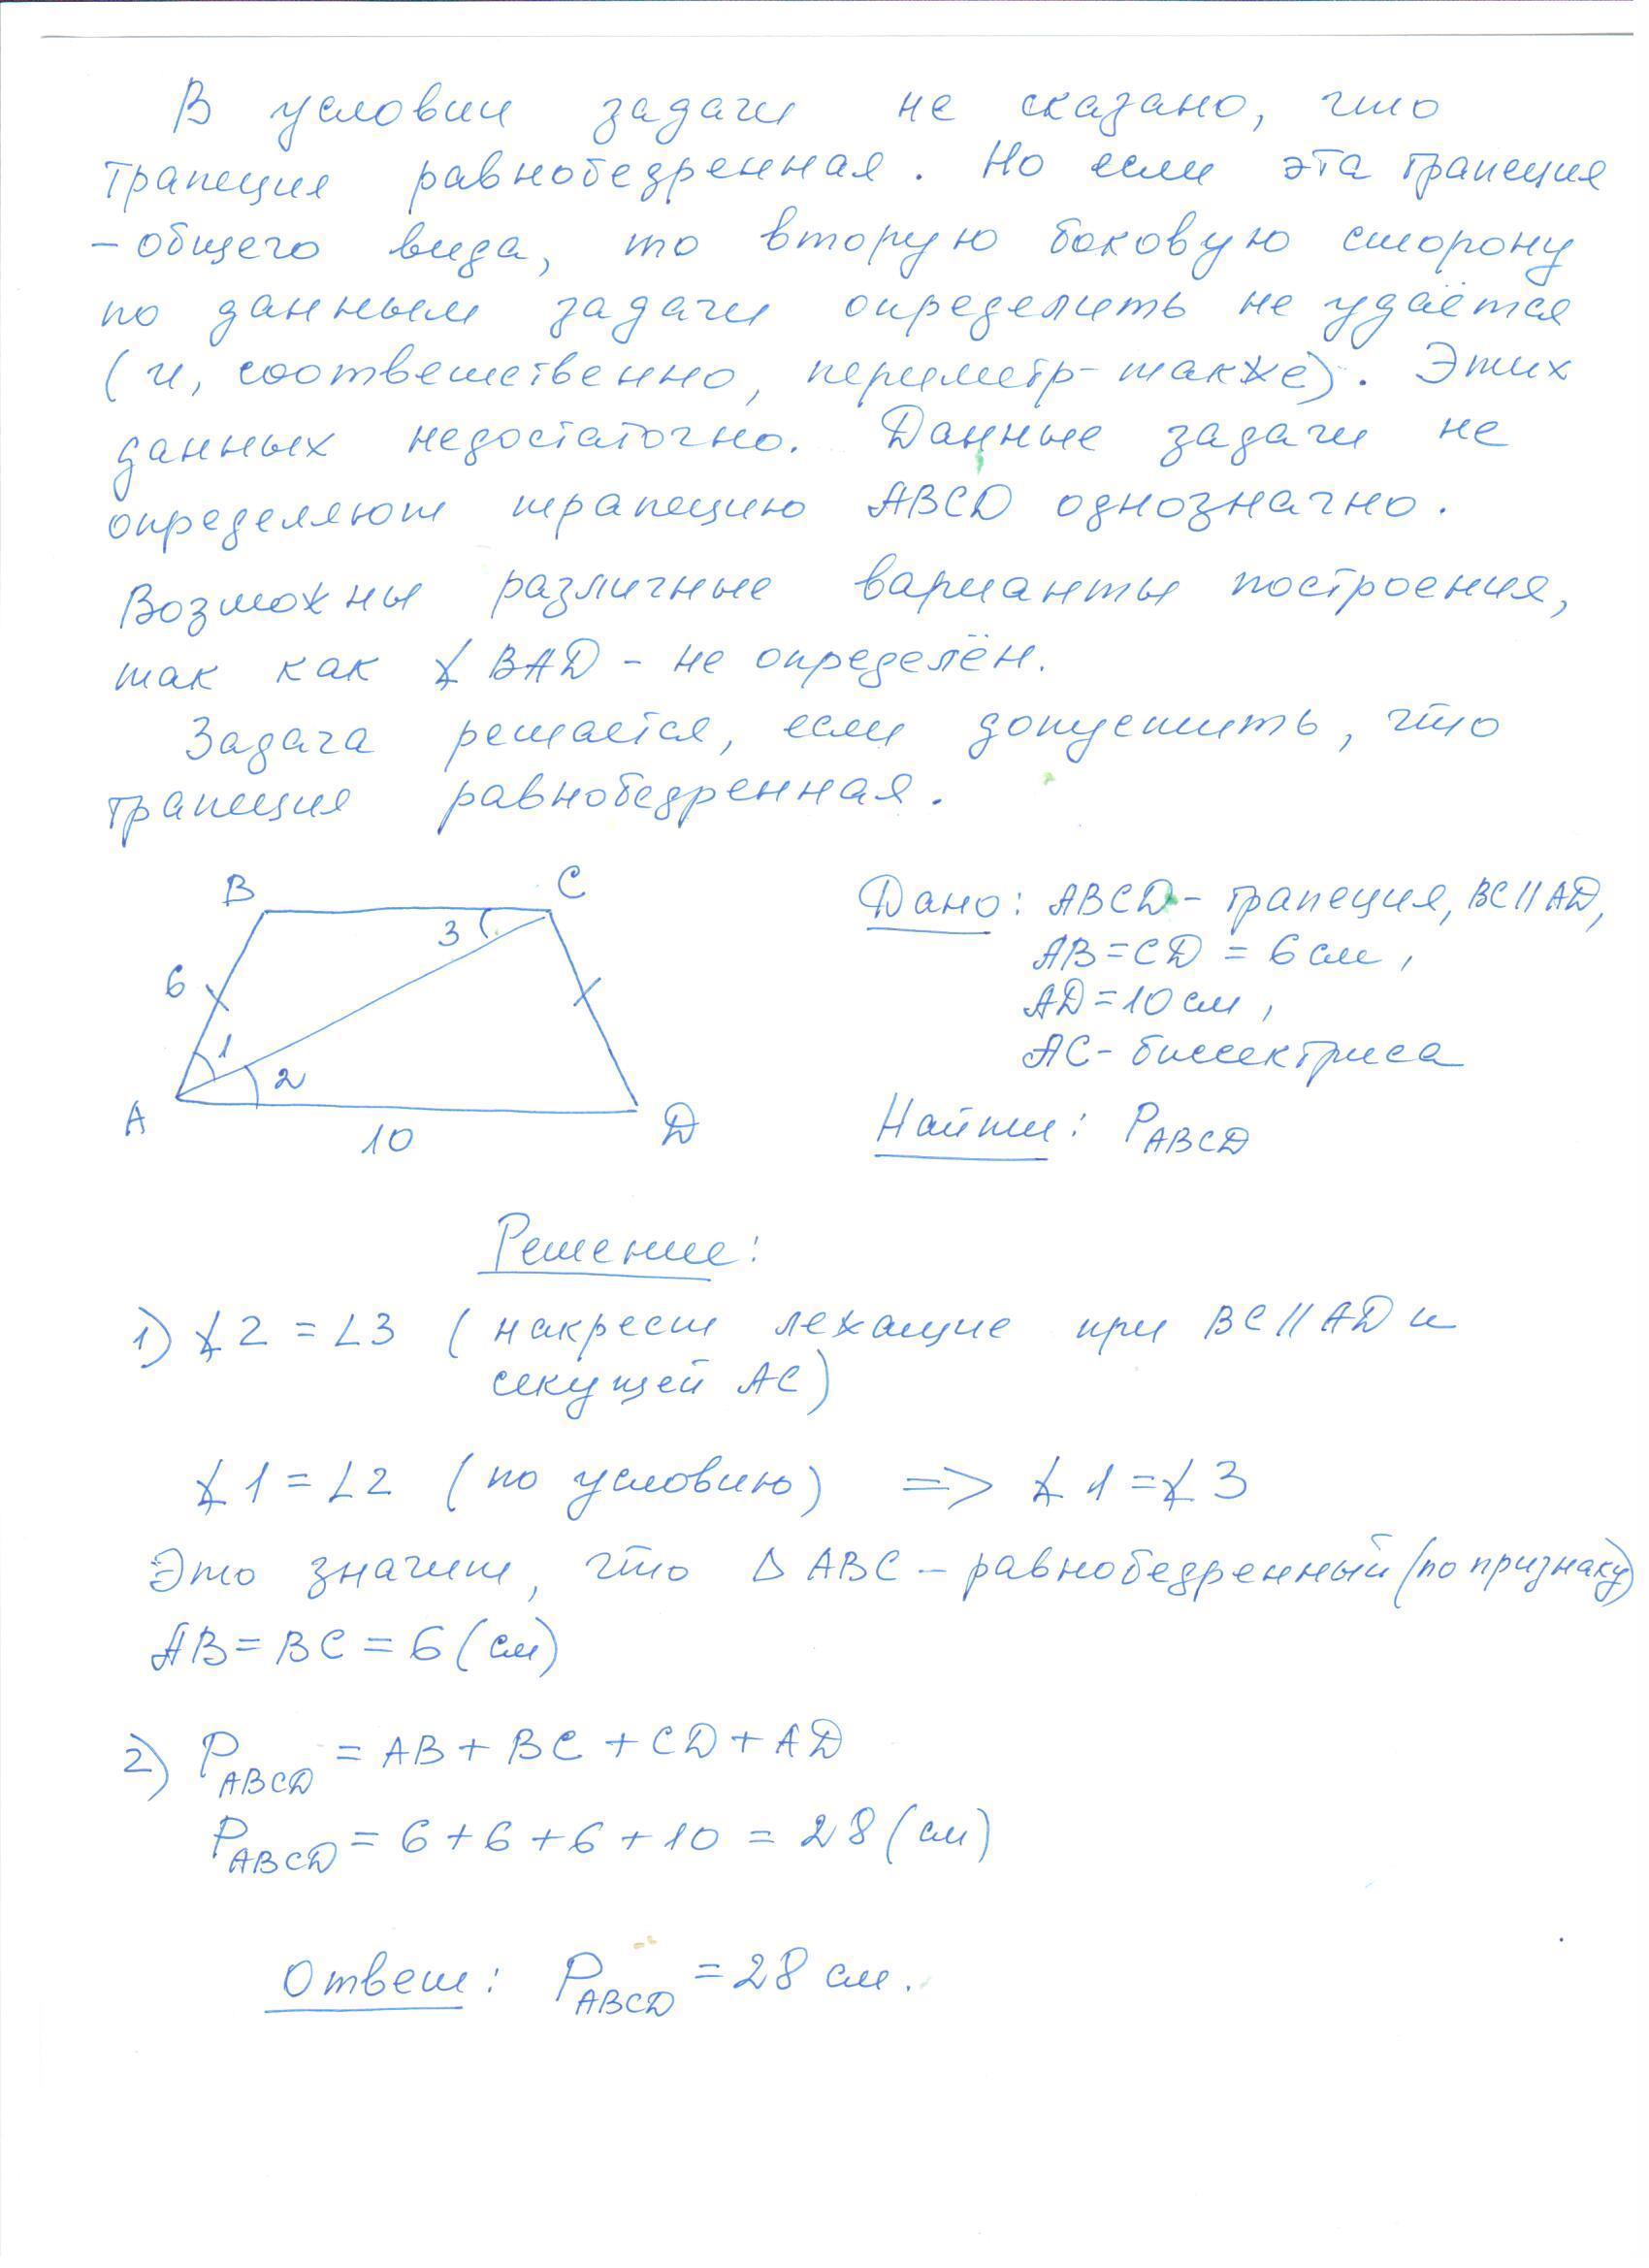 В условии задачи не сказано, что
трапеция равнобедренная. Но если эта трапеция
- общего вида, то вторую боковую сторону
по данным задачи определить не удаётся
(и, соответственно, периметр - также). Этих
данных недостаточно. Данные задачи не
определяют трапецию ABCD однозначно.
Возможны различные варианты построения,
так как ∡ BAD - не определён.
Задача решается, если допустить, что
трапеция равнобедренная.
B C
3
6
1
2
A D
10
Дано: ABCD - трапеция, BC || AD,
AB = CD = 6 см,
AD = 10 см,
AC - биссектриса
Найти: P_ABCD
Решение:
1) ∡2 = ∠3 (накрест лежащие при BC || AD и
секущей AC)
∡1 = ∠2 (по условию) => ∡1 = ∡3
Это значит, что △ ABC - равнобедренный (по признаку)
AB = BC = 6 (см)
2) P_ABCD = AB + BC + CD + AD
P_ABCD = 6 + 6 + 6 + 10 = 28 (см)
Ответ: P_ABCD = 28 см.